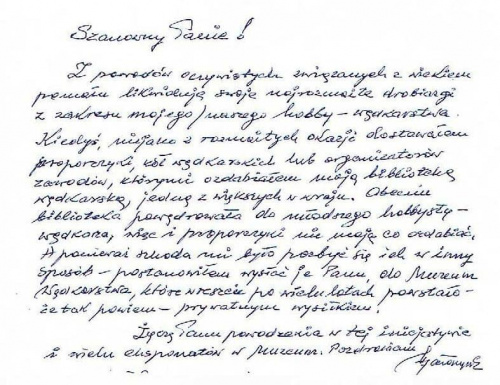 Szanowny Panie!
Z powodów oczywistych związanych z wiekiem
pomału likwiduję swoje najrozmaitsze drobiazgi
z zakresu mojego/naszego hobby - wędkarstwa.
Kiedyś, niejako z rozmaitych okazji dostawałem
proporczyki, kół wędkarskich lub organizatorów
zawodów, którymi ozdabiałem moją bibliotekę
wędkarską, jedną z większych w kraju. Obecnie
biblioteka powędrowała do młodszego hobbysty -
wędkarza, więc i proporczyki nie mają co ozdabiać.
A ponieważ szkoda mi było pozbyć się ich w inny
sposób - postanowiłem wysłać je Panu, do Muzeum
Wędkarstwa, które wreszcie po wielu latach powstało -
że tak powiem - prywatnym wysiłkiem.
Życzę Panu powodzenia w tej inicjatywie
i wielu eksponatów w Muzeum. Pozdrawiam